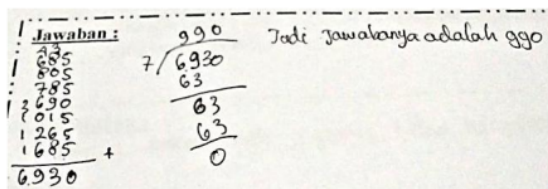 Jawaban :
43
685
805
785
690
1015
1265
1685 +
6.930
990
7 6.930
63
63
63
0
Jadi Jawabanya adalah 990